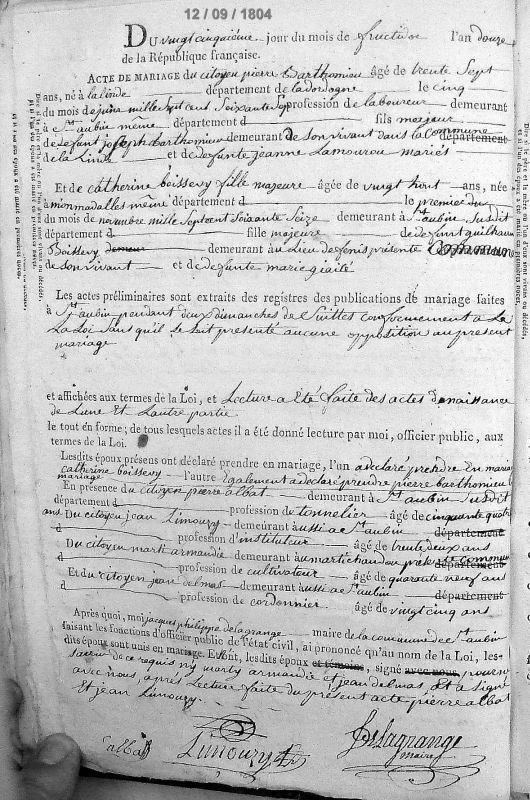 12 / 09 / 1804
Du vingt cinquième jour du mois de fructidor l'an douze
de la République française.
Acte de mariage du citoyen pierre Barthomiou âgé de trente Sept
ans, né à la linde département de la dordogne le cinq
du mois de juin mille sept cent Soixante Sept profession de laboureur demeurant
à St aubin même département d fils majeur
de defunt joseph barthomiou demeurant De son vivant dans la Commune département
de la Linde et de defunte jeanne Lamourou mariés
Et de catherine boissery fille majeure âgée de vingt huit ans, née
à monmadalles même département d le premier du
du mois de novembre mille Sept cent Soixante Seize demeurant à St aubin Susdit
département d fille majeure de defunt guilhaume
Boissery demeurant au Lieu de fenis présente Commune
de son vivant et de defunte marie
Les actes préliminaires sont extraits des registres des publications de mariage faites
à St aubin pendant deux dimanches de Suittes conformement a La
La Loi Sans quil se soit presenté aucune opposition au present
mariage
et affichées aux termes de la Loi, et Lecture a Eté faite des actes de naissance
de Lune Et Lautre partie
le tout en forme; de tous lesquels actes il a été donné lecture par moi, officier public, aux
termes de la Loi.
Lesdits époux présens ont déclaré prendre en mariage, l'un a declaré prendre En mariage
catherine boissery l'autre Egalement a declaré prendre pierre barthomiou
mariage
En présence du citoyen pierre albat demeurant à St aubin Susdit
département d profession de tonnelier âgé de cinquante quatre
ans Du citoyen jean Limoury demeurant aussi a St aubin département
d profession d'instituteur âgé de trente deux ans
Du citoyen marti armandie demeurant au martichandou presente commune
d profession de cultivateur âgé de quarante neuf ans
Et du citoyen jean delmas demeurant aussi a St aubin département
d profession de cordonnier âgé de vingt cinq ans
Après quoi, moi jacques philippe delagrange maire de la commune de St aubin
faisant les fonctions d'officier public de l'état civil, ai prononcé qu'au nom de la Loi, les-
dits époux sont unis en mariage. Et ont, lesdits époux et témoins, signé avec nous,
savoir de ce requis ny marty armandie et jean delmas, Et a Signé
avec nous, après Lecture faite du présent acte pierre albat
Et jean Limoury.
albat Limoury Delagrange
maire